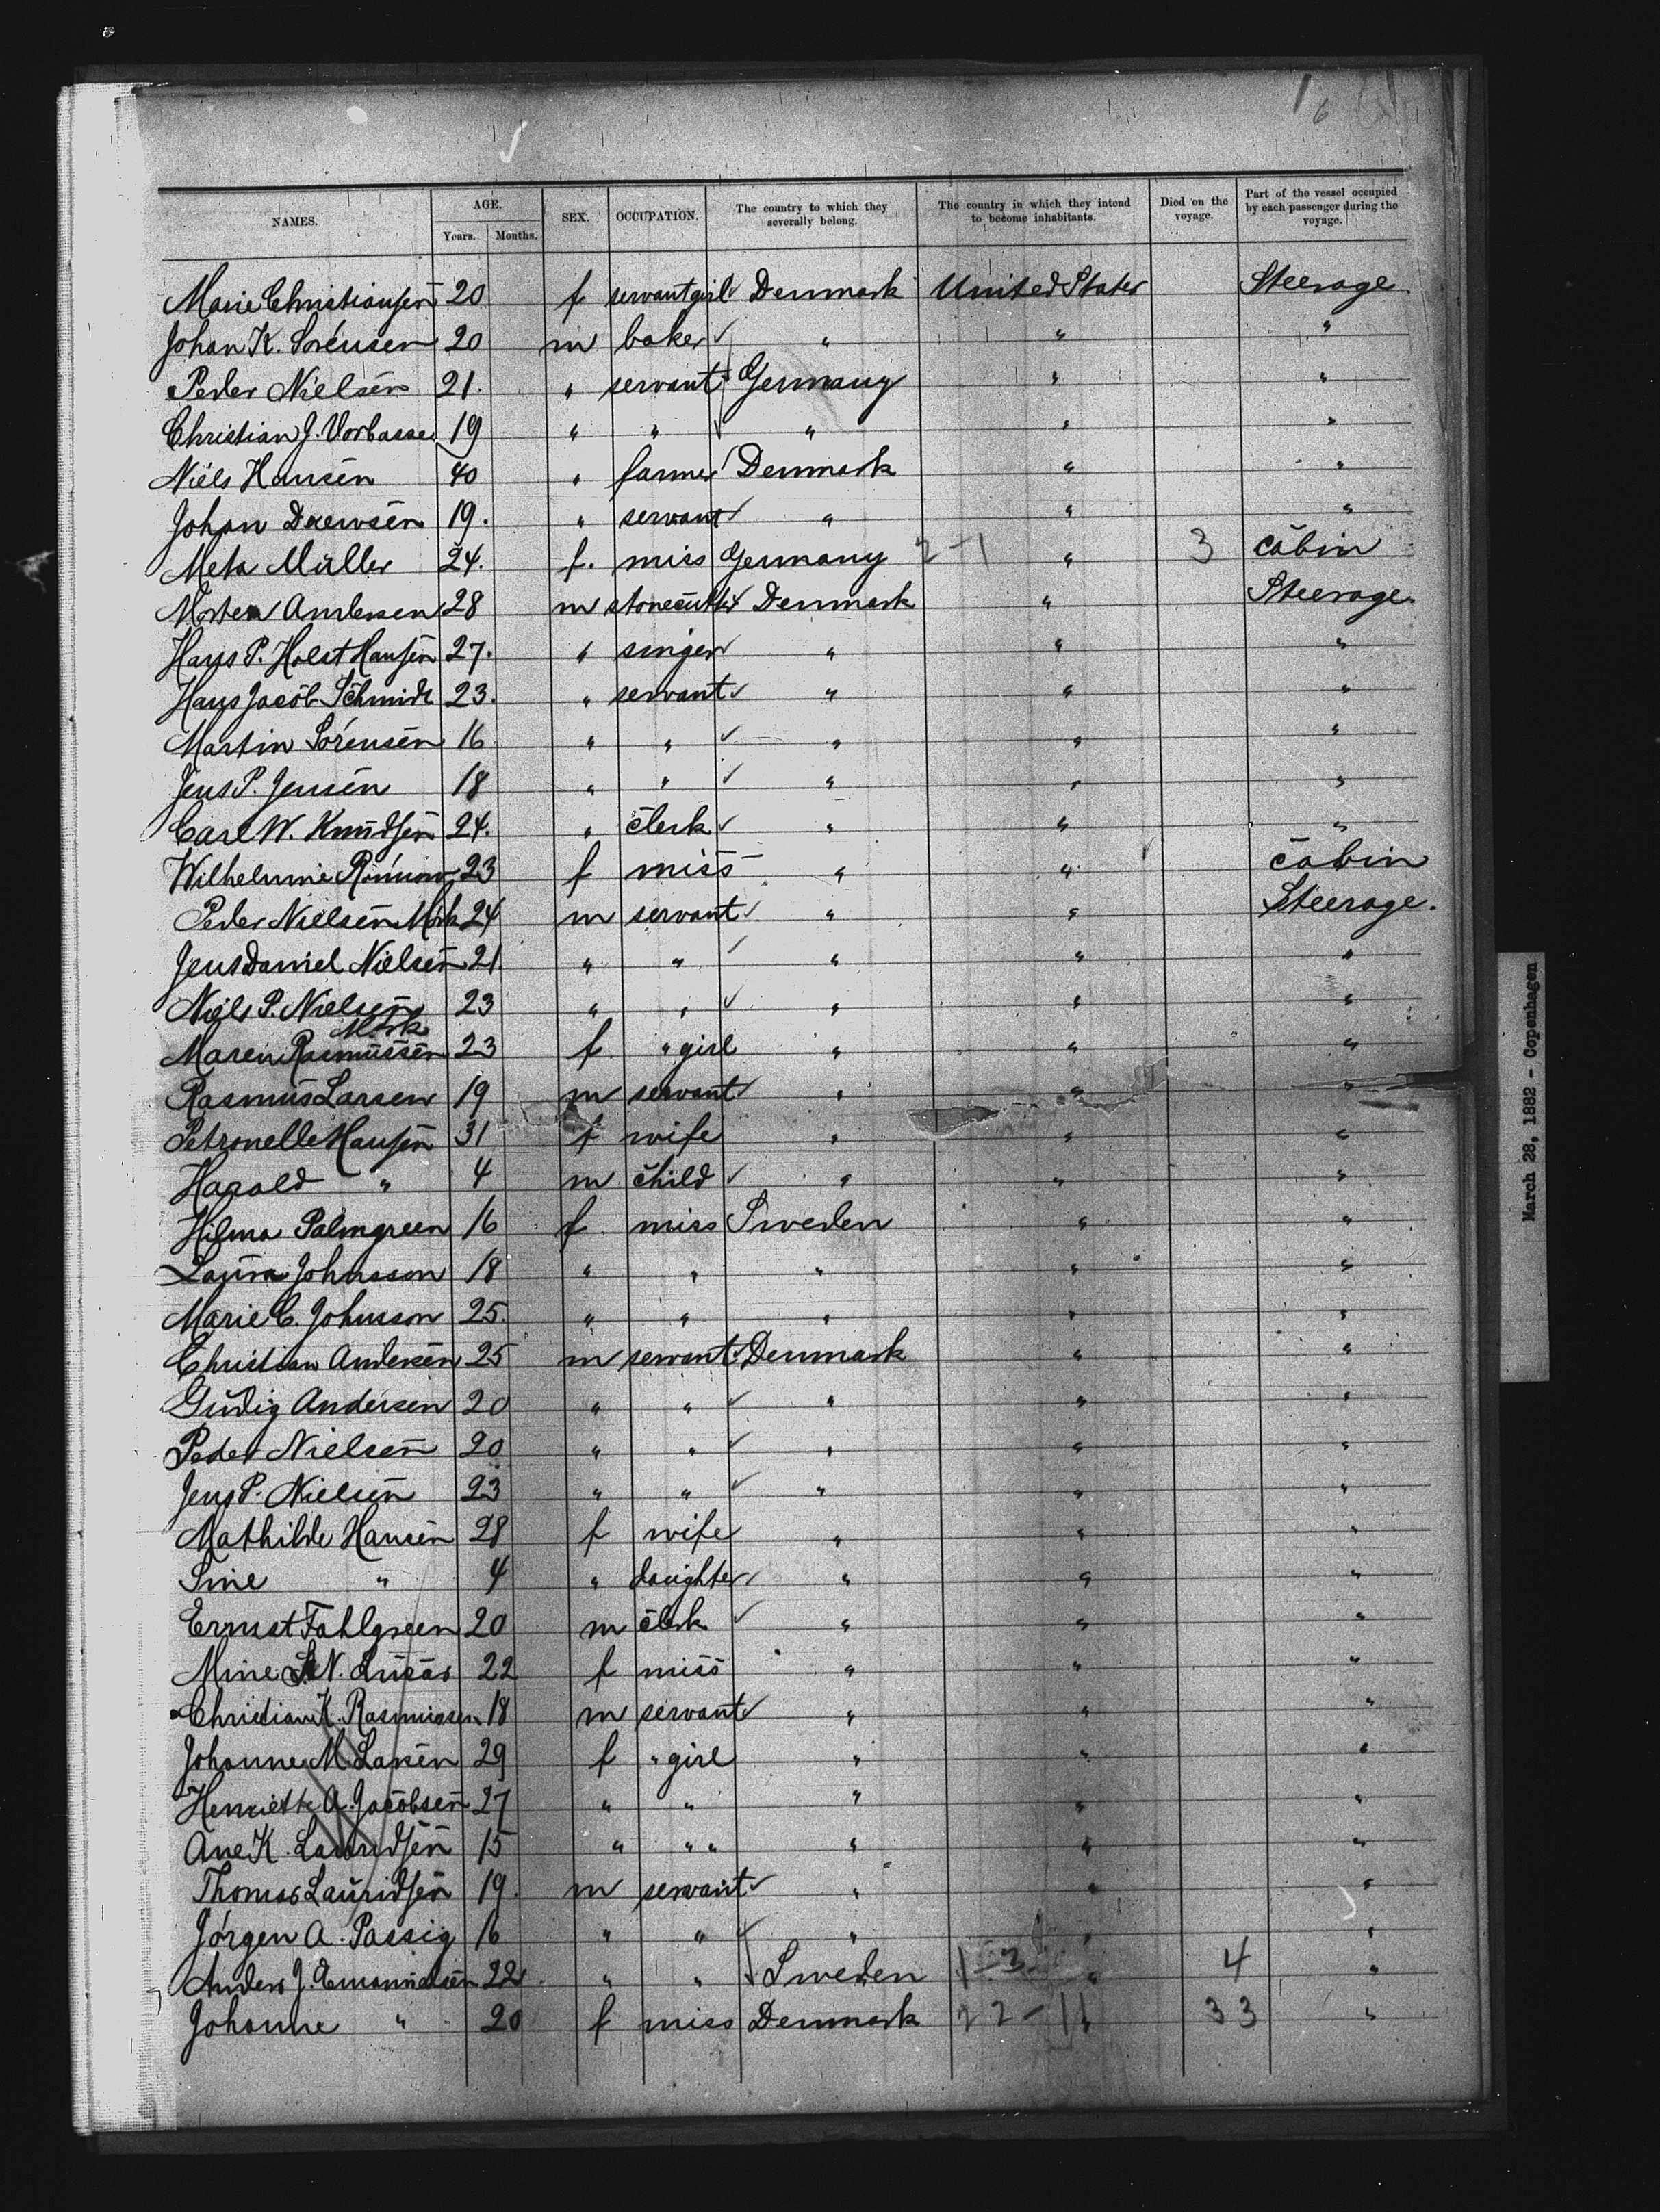 6
NAMES. AGE. Years. Months. SEX. OCCUPATION. The country to which they severally belong. The country in which they intend to become inhabitants. Died on the voyage. Part of the vessel occupied by each passenger during the voyage.
Marie Christiansen 20 f servantgirl Denmark United States Steerage
Johan K. Sörensen 20 m baker " " "
Peder Nielsen 21. " servant Germany " "
Christian J. Vorbasse 19 " " " " "
Niels Hansen 40 " farmer Denmark " "
Johan Drewsen 19. " servant " " "
Meta Müller 24. f. miss Germany 2-1 " 3 cabin
Morten Andersen 28 m stonecutter Denmark " Steerage
Hans P. Holst Hansen 27. " singer " " "
Hans Jacob Schmidt 23. " servant " " "
Martin Sörensen 16 " " " " "
Jens P. Jensen 18 " " " " "
Carl W. Knudsen 24. " clerk " " "
Wilhelmine Rönnow 23 f miss " " cabin
Peder Nielsen Mörk 24 m servant " " Steerage.
Jens Daniel Nielsen 21 " " " " "
Niels P. Nielsen Mörk 23 " " " " "
Maren Rasmussen 23 f " girl " " "
Rasmus Larsen 19 m servant " " "
Petronelle Hansen 31 f wife " " "
Harald " 4 m child " " "
Hilma Palmgreen 16 f miss Sweden " "
Laura Johnsson 18 " " " " "
Marie C. Johnsson 25. " " " " "
Christian Andersen 25 m servant Denmark " "
Andersen 20 " " " " "
Peder Nielsen 20 " " " " "
Jens P. Nielsen 23 " " " " "
Mathilde Hansen 28 f wife " " "
Sine " 4 " daughter " " "
Ernst Fahlgreen 20 m clerk " " "
Mine N. Lucas 22 f miss " " "
Christian K. Rasmussen 18 m servant " " "
Johanne M. Larsen 29 f " girl " " "
Henriette A. Jacobsen 27 " " " " "
Ane K. Lauridsen 15 " " " " " "
Thomas Lauridsen 19. m servant " " "
Jörgen A. Passig 16 " " " " "
Anders J. Emanuelsen 22 " " Sweden 1-3 " 4 "
Johanne " 20 f miss Denmark 22-11 " 33 "
March 28, 1882 - Copenhagen